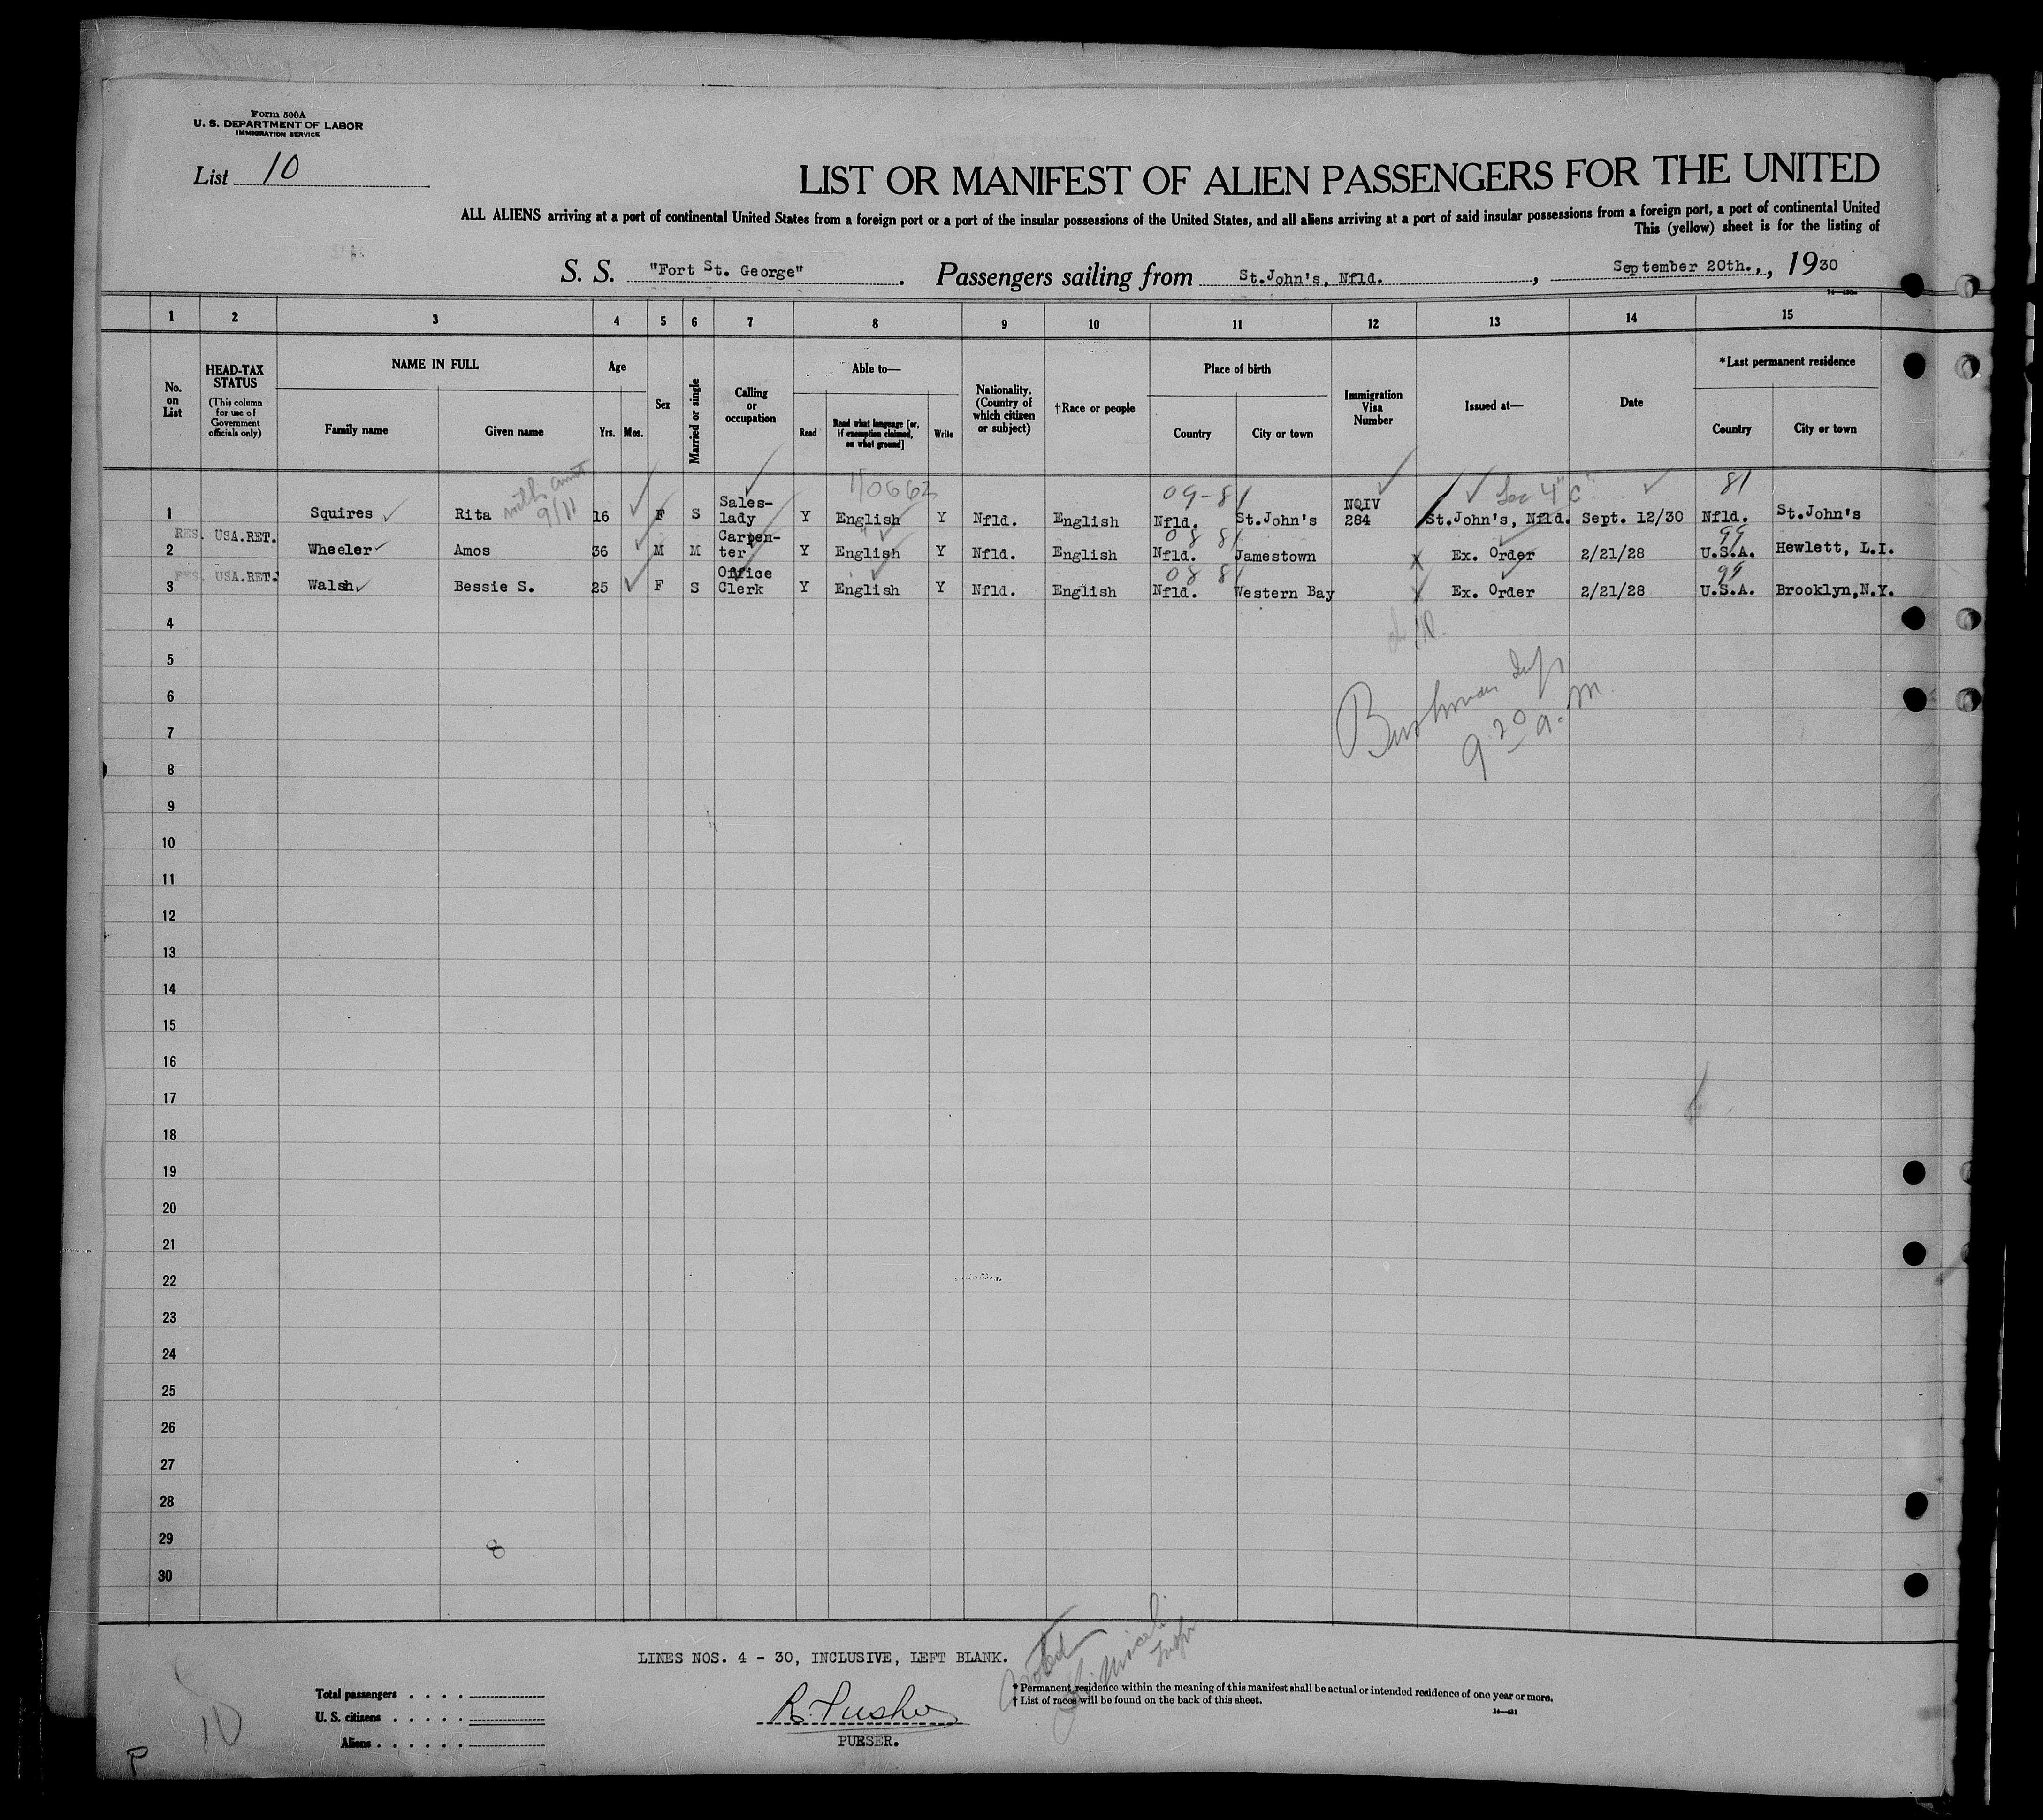 Form 500A
U. S. DEPARTMENT OF LABOR
IMMIGRATION SERVICE
List 10
LIST OR MANIFEST OF ALIEN PASSENGERS FOR THE UNITED
ALL ALIENS arriving at a port of continental United States from a foreign port or a port of the insular possessions of the United States, and all aliens arriving at a port of said insular possessions from a foreign port, a port of continental United
This (yellow) sheet is for the listing of
S. S. "Fort St. George". Passengers sailing from St.John's, Nfld., September 20th., , 1930
1 2 3 4 5 6 7 8 9 10 11 12 13 14 15
No. on List
HEAD-TAX STATUS
(This column for use of Government officials only)
NAME IN FULL
Family name Given name
Age
Yrs. Mos.
Sex
Married or single
Calling or occupation
Able to—
Read
Read what language [or, if exemption claimed, on what ground]
Write
Nationality. (Country of which citizen or subject)
†Race or people
Place of birth
Country City or town
Immigration Visa Number
Issued at—
Date
*Last permanent residence
Country City or town
with aunt 9/11
110662
09-81
Sec 4 "C"
81
1 Squires Rita 16 F S Sales-lady Y English Y Nfld. English Nfld. St.John's NQIV 284 St.John's, Nfld. Sept. 12/30 Nfld. St.John's
RES. USA.RET.
08 81
99
2 Wheeler Amos 36 M M Carpen-ter Y English Y Nfld. English Nfld. Jamestown Ex. Order 2/21/28 U.S.A. Hewlett, L.I.
RES. USA.RET.
08 81
99
3 Walsh Bessie S. 25 F S Office Clerk Y English Y Nfld. English Nfld. Western Bay Ex. Order 2/21/28 U.S.A. Brooklyn,N.Y.
4
5
6
7
8
9
10
11
12
13
14
15
16
17
18
19
20
21
22
23
24
25
26
27
28
29
30
9 20 a.m.
8
LINES NOS. 4 - 30, INCLUSIVE, LEFT BLANK.
Total passengers
U. S. citizens
Aliens
10
P
PURSER.
* Permanent residence within the meaning of this manifest shall be actual or intended residence of one year or more.
† List of races will be found on the back of this sheet.